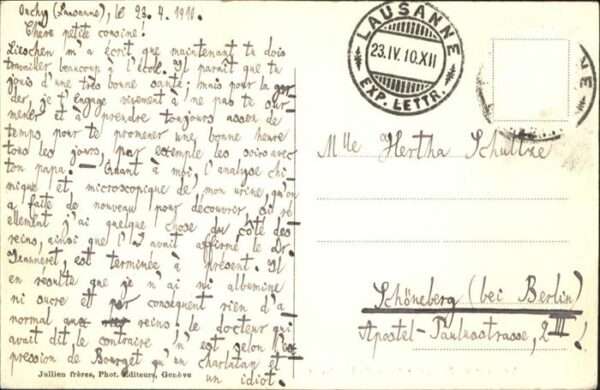 Ouchy (Lausanne), le 23. 4. 1910.
Chère petite cousine!
Lieschen m'a écrit que maintenant tu dois
travailler beaucoup à l'école. Il paraît que tu
jouis d'une très bonne santé; mais pour la gar-
der, je t'engage vivement à ne pas te sur-
mener et à prendre toujours assez de
temps pour te promener une bonne heure
tous les jours, par exemple les soirs avec
ton papa. — Quant à moi, l'analyse chi-
mique et microscopique de mon urine, qu'on
a faite de nouveau pour découvrir si ré-
ellement j'ai quelque chose du côté des
reins, ainsi que l'avait affirmé le Dr.
Jeanneret, est terminée à présent. Il
en résulte que je n'ai ni albumine
ni sucre et par conséquent rien d'a-
normal reins; le docteur qui
avait dit le contraire n'est selon l'ex-
pression de Bourget qu'un charlatan et
un idiot.
Jullien frères, Phot. Editeurs, Genève
LAUSANNE
23.IV.10.XII
EXP. LETTR.
NE
Mlle Hertha Schultze
Schöneberg (bei Berlin)
Apostel-Paulusstrasse, 2 III!